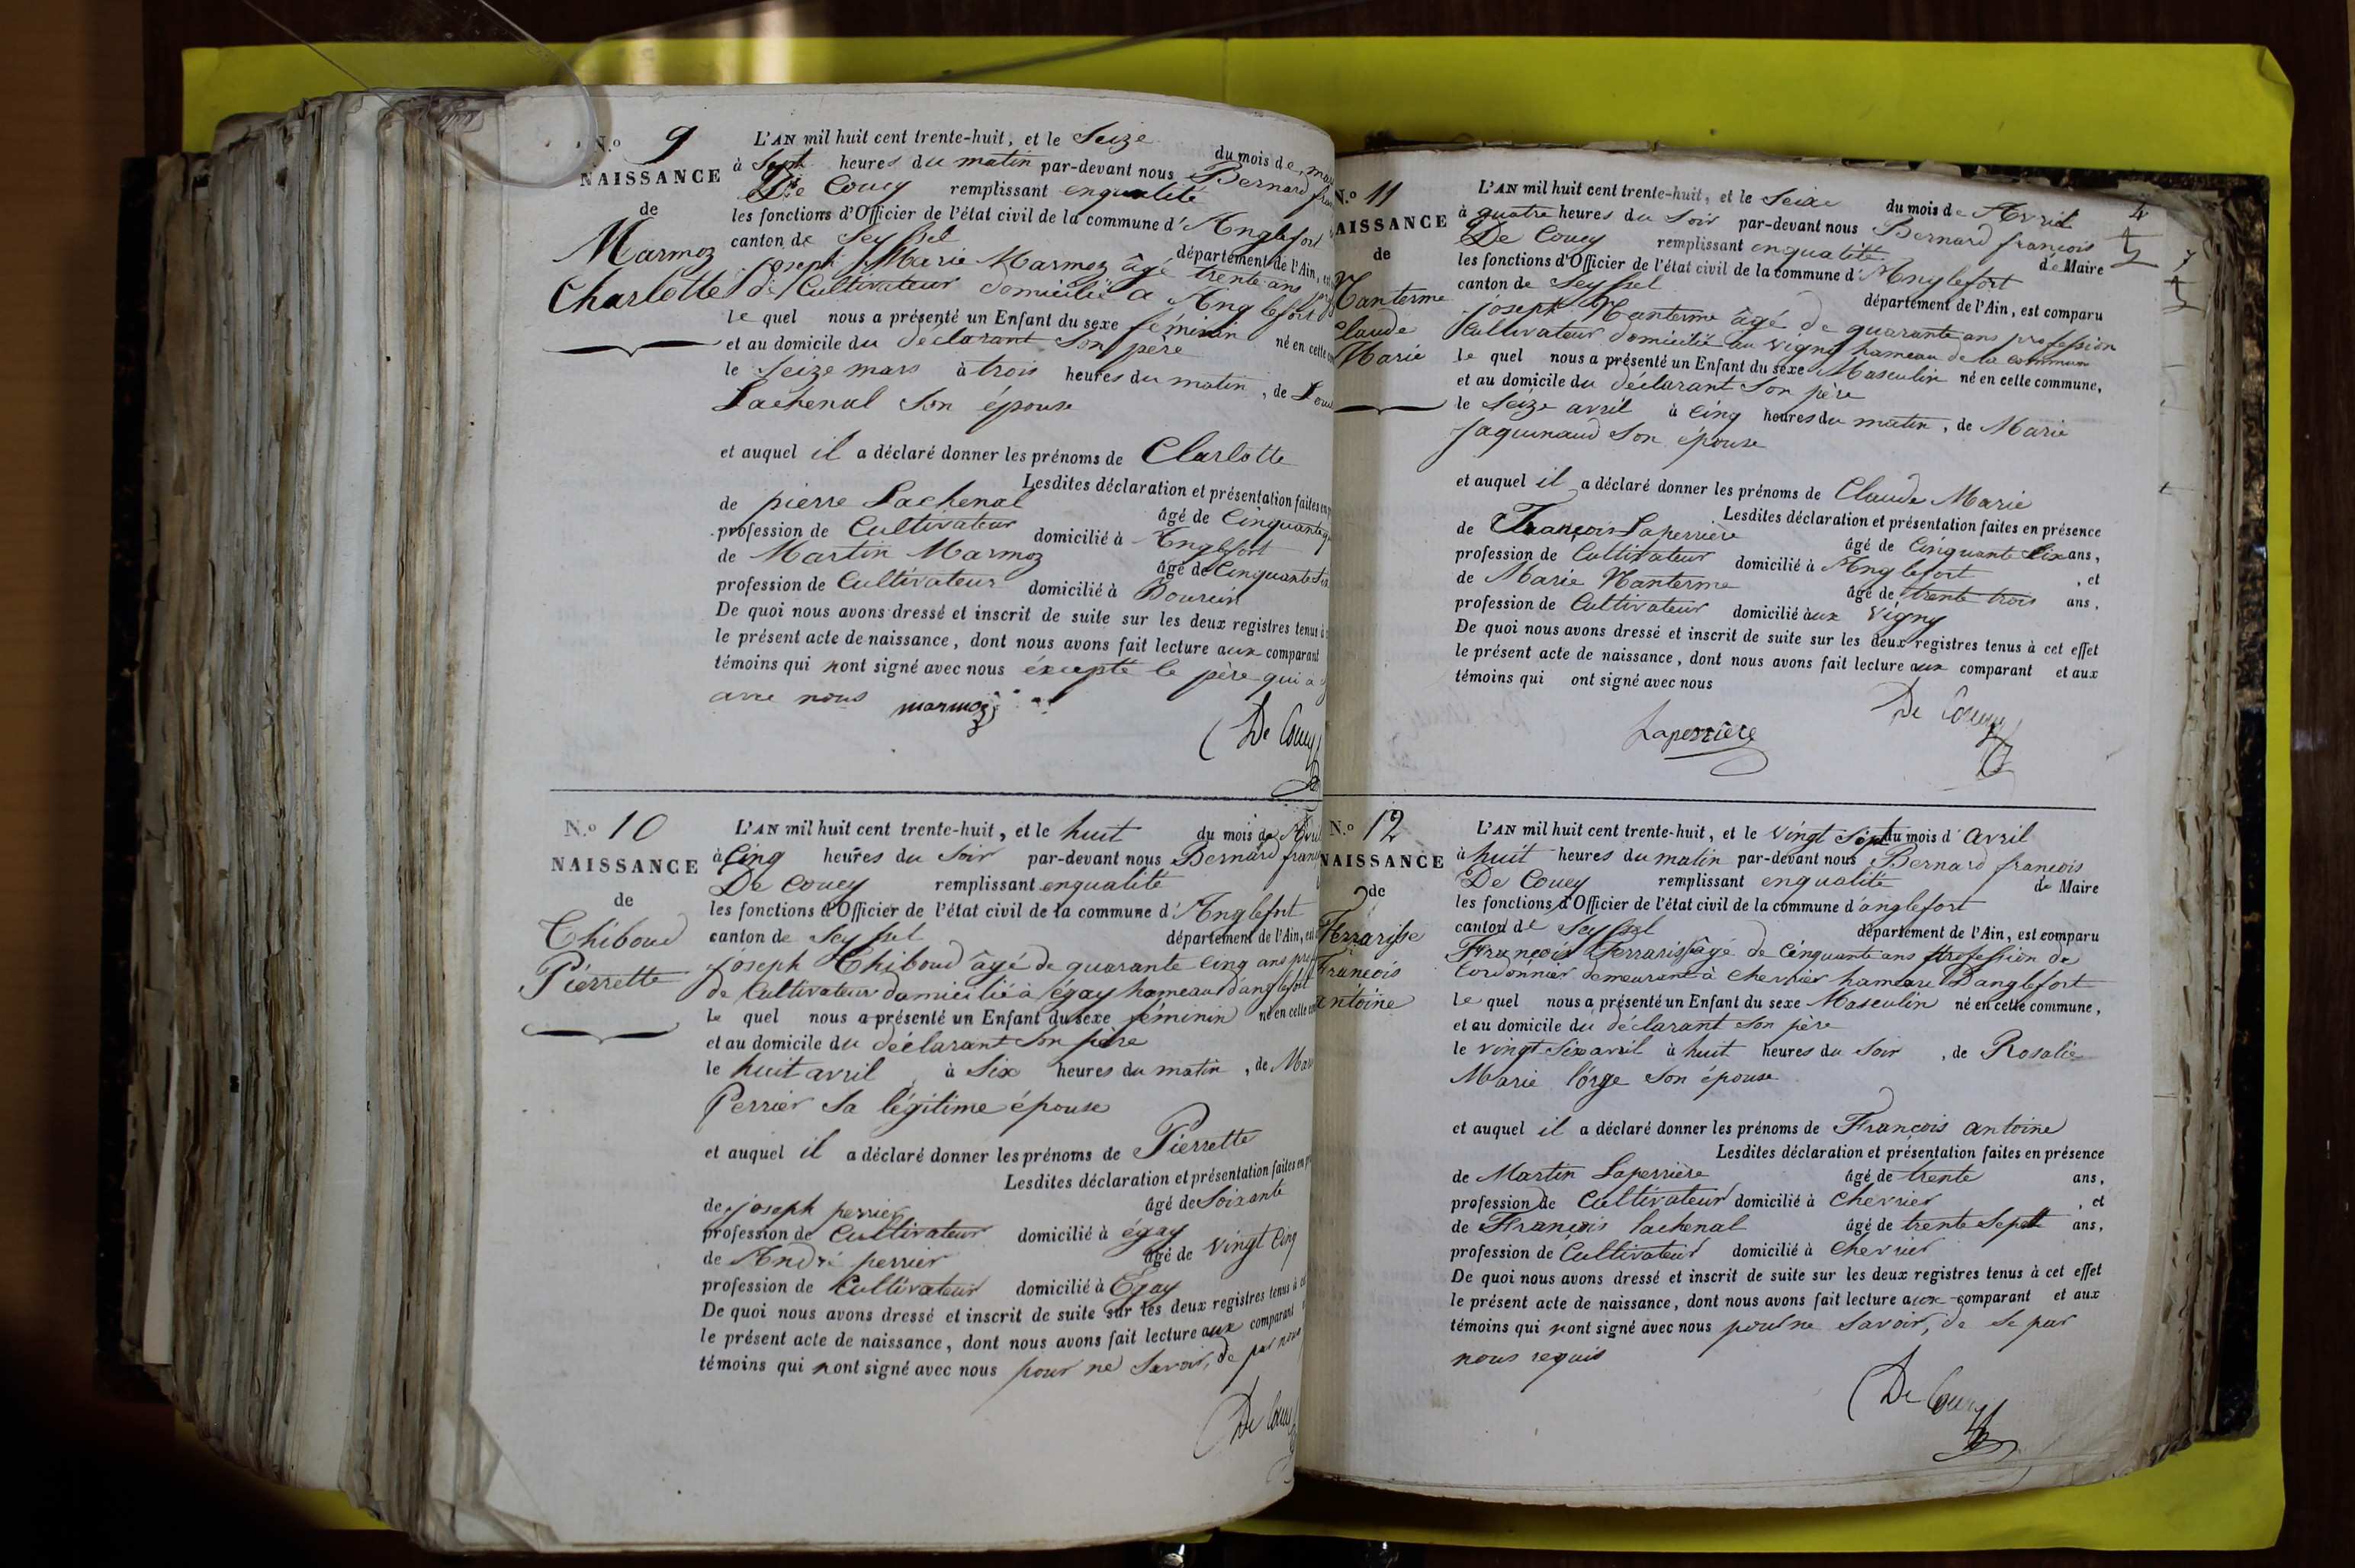 N.o 9
NAISSANCE
de
Marmoz
Charlotte
L'AN mil huit cent trente-huit, et le Seize du mois de mars
à Sept heures du matin par-devant nous Bernard
De Coucy remplissant en qualité
les fonctions d'Officier de l'état civil de la commune d'Anglefort
canton de Seyssel département de l'Ain,
joseph Marie Marmoz âgé trente ans
de Cultivateur domicilié à Anglefort
le quel nous a présenté un Enfant du sexe féminin né en cette
et au domicile du déclarant Son père
le Seize mars à trois heures du matin, de
Lachenal Son épouse
et auquel il a déclaré donner les prénoms de Clarlotte
Lesdites déclaration et présentation faites en
de pierre Lachenal âgé de Cinquante
profession de Cultivateur domicilié à Anglefort
de Martin Marmoz âgé de Cinquante
profession de Cultivateur domicilié à
De quoi nous avons dressé et inscrit de suite sur les deux registres tenus à
le présent acte de naissance, dont nous avons fait lecture aux comparant
témoins qui nont signé avec nous éxcepté le père qui a
avec nous marmoz
De Coucy
N.o 10
NAISSANCE
de
Thiboud
Pierrette
L'AN mil huit cent trente-huit, et le huit du mois de
à Cinq heures du Soir par-devant nous Bernard
De Coucy remplissant en qualité
les fonctions d'Officier de l'état civil de la commune d'Anglefort
canton de Seyssel département de l'Ain,
joseph Thiboud âgé de quarante Cinq ans
de Cultivateur domicilié à égay hameau d'anglefort
le quel nous a présenté un Enfant du sexe féminin né en cette
et au domicile du déclarant Son père
le huit avril à Six heures du matin, de
Perrier Sa légitime épouse
et auquel il a déclaré donner les prénoms de Pierrette
Lesdites déclaration et présentation faites en
de joseph perrier âgé de Soixante
profession de Cultivateur domicilié à égay
de André perrier âgé de vingt Cinq
profession de Cultivateur domicilié à Egay
De quoi nous avons dressé et inscrit de suite sur les deux registres tenus à
le présent acte de naissance, dont nous avons fait lecture aux comparant
témoins qui nont signé avec nous pour ne Savoir, de par nous
De Coucy
N.o 11
NAISSANCE
de
Nanterme
Claude
Marie
L'AN mil huit cent trente-huit, et le Seize du mois de Avril
à quatre heures du Soir par-devant nous Bernard françois
De Coucy remplissant en qualité de Maire
les fonctions d'Officier de l'état civil de la commune d'Anglefort
canton de Seyssel département de l'Ain, est comparu
joseph Nanterme âgé de quarante ans profession
Cultivateur domicilié au vigny hameau de la commune
le quel nous a présenté un Enfant du sexe Masculin né en cette commune,
et au domicile du déclarant Son père
le Seize avril à Cinq heures du matin, de Marie
Jaquinaud Son épouse
et auquel il a déclaré donner les prénoms de Claude Marie
Lesdites déclaration et présentation faites en présence
de François Laperrière âgé de Cinquante Six ans,
profession de Cultivateur domicilié à Anglefort, et
de Marie Nanterme âgé de trente trois ans,
profession de Cultivateur domicilié aux Vigny
De quoi nous avons dressé et inscrit de suite sur les deux registres tenus à cet effet
le présent acte de naissance, dont nous avons fait lecture aux comparant et aux
témoins qui ont signé avec nous
De Coucy
Laperrière
N.o 12
NAISSANCE
de
Ferrarisse
François
antoine
L'AN mil huit cent trente-huit, et le vingt Sept du mois d'avril
à huit heures du matin par-devant nous Bernard françois
De Coucy remplissant en qualité de Maire
les fonctions d'Officier de l'état civil de la commune d'anglefort
canton de Seyssel département de l'Ain, est comparu
François Ferraris âgé de Cinquante ans profession de
Cordonnier demeurant à Chevrier hameau D'anglefort
le quel nous a présenté un Enfant du sexe Masculin né en cette commune,
et au domicile du déclarant Son père
le vingt Six avril à huit heures du Soir, de Rosalie
Marie lorge Son épouse
et auquel il a déclaré donner les prénoms de François antoine
Lesdites déclaration et présentation faites en présence
de Martin Laperrière âgé de trente ans,
profession de Cultivateur domicilié à Chevrier, et
de François lachenal âgé de trente Sept ans,
profession de Cultivateur domicilié à Chevrier
De quoi nous avons dressé et inscrit de suite sur les deux registres tenus à cet effet
le présent acte de naissance, dont nous avons fait lecture aux comparant et aux
témoins qui nont signé avec nous pour ne Savoir, de se par
nous requis
De Coucy